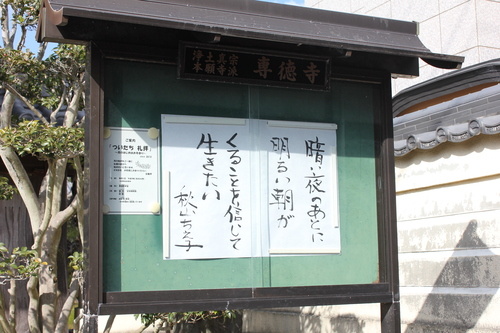 浄土真宗
本願寺派
専徳寺
暗い夜のあとに
明るい朝が
くることを信じて
生きたい
秋山ちえ子
ご案内
「ついたち 礼拝」